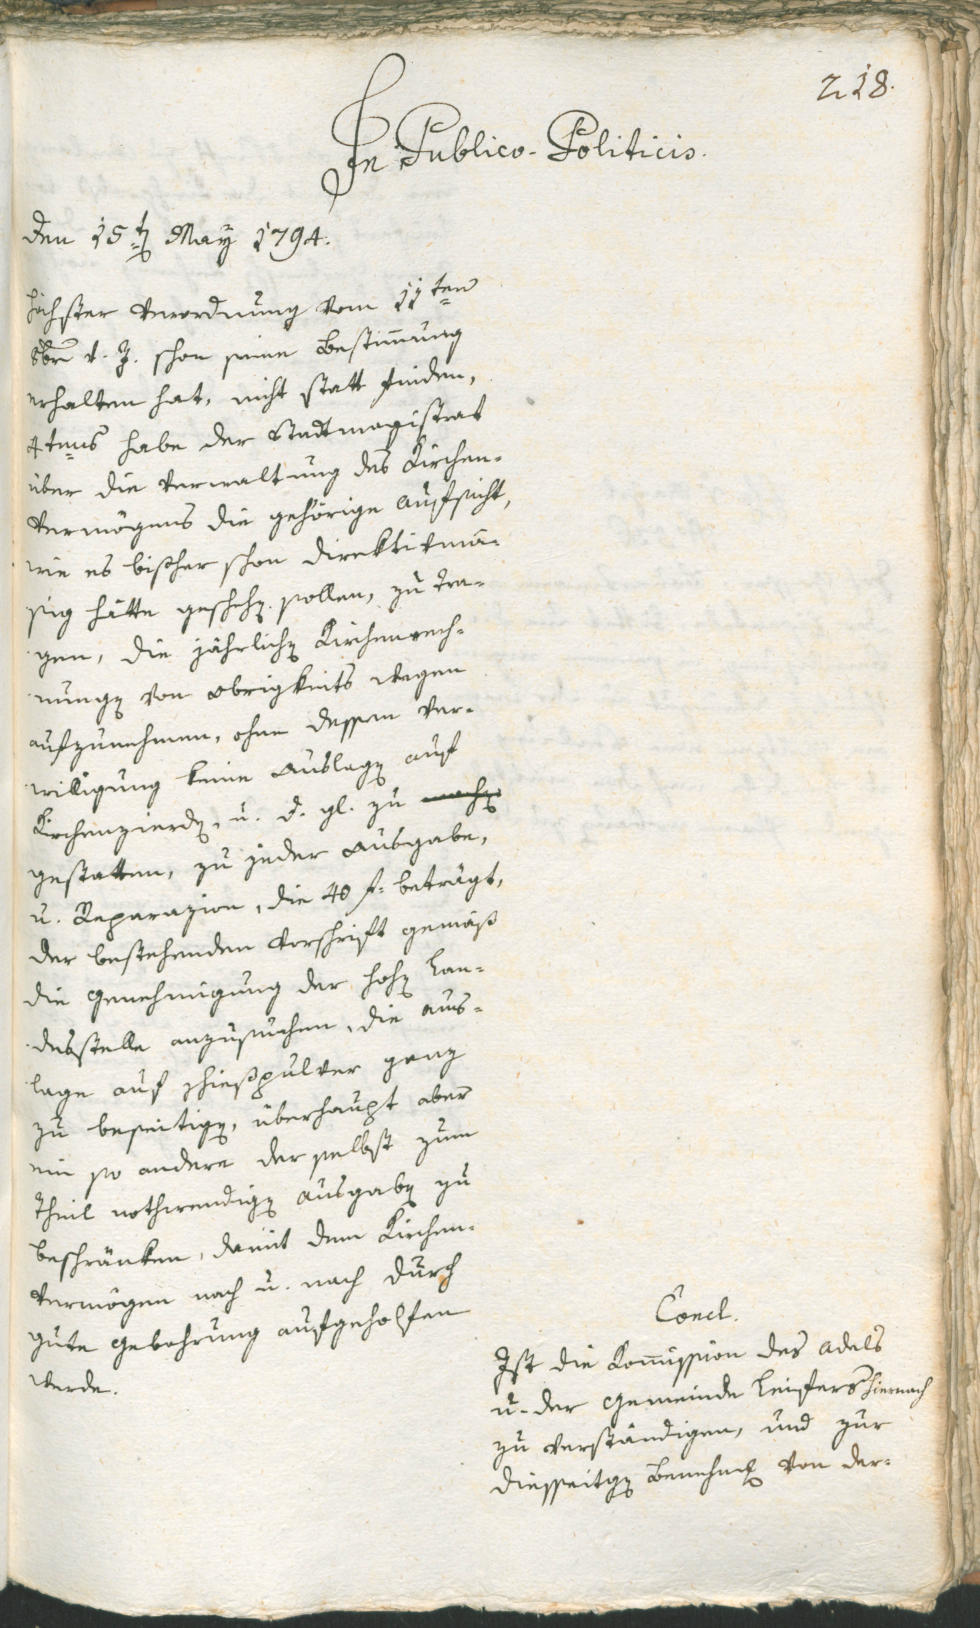 218.
In Publico-Politicis.
Den 15t. May 1794.
höchster Verordnung vom 11ten
8br v. J. schon seine Bestimmung
erhalten hat, nicht statt finden,
4tens habe der Stadtmagistrat
über die Verwaltung des Kirchen-
vermögens die gehörige Aufsicht,
wie es bisher schon direktivmä-
ßig hätte geschehen sollen, zu tra-
gen, die jährlichen Kirchenrech-
nungen von Obrigkeits wegen
aufzunehmen, ohne dessen Ver-
willigung keine Auslagen auf
Kirchenzierden, u. d. gl. zu machen
gestatten, zu jeder Ausgabe,
u. Reparazion, die 40 f. beträgt,
der bestehenden Vorschrift gemäß
die Genehmigung der hohen Lan-
desstelle anzusuchen, die Aus-
lage auf Schießpulver ganz
zu beseitigen, überhaupt aber
ein so andere der selbst zum
Theil nothwendigen Ausgaben zu
beschränken, damit dem Kirchen-
vermögen nach u. nach durch
gute Gebahrung aufgeholfen
werde.
Concl.
Ist die Kommission des Adels
u. der Gemeinde Leifers hiernach
zu verständigen, und zur
diesseitigen Benehmen von der-